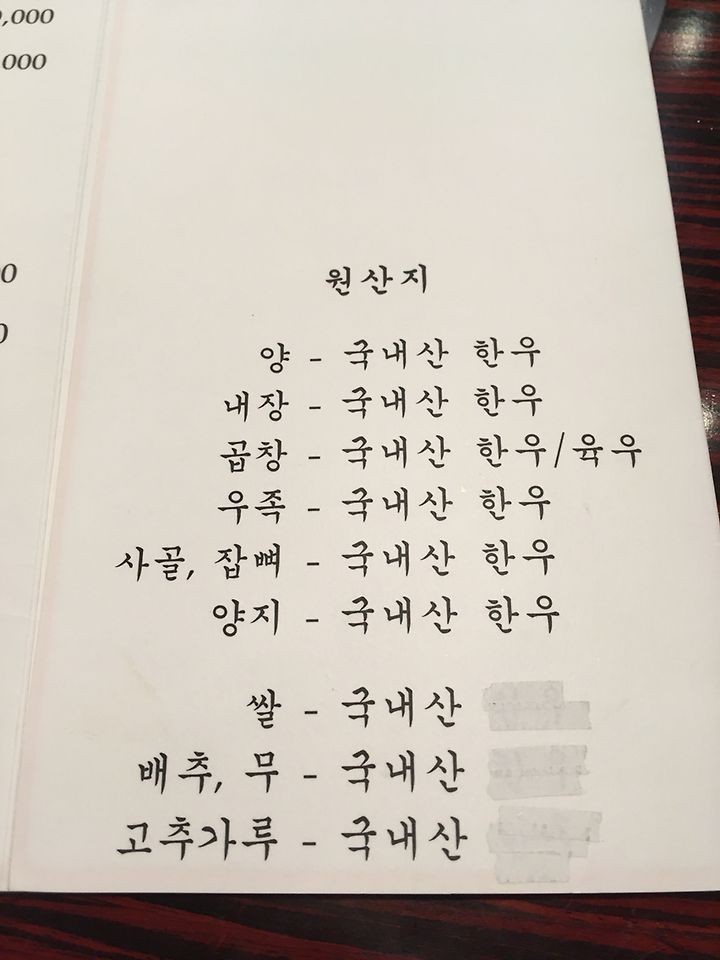 ,000
,000
00
0
원산지
양 - 국내산 한우
내장 - 국내산 한우
곱창 - 국내산 한우/육우
우족 - 국내산 한우
사골, 잡뼈 - 국내산 한우
양지 - 국내산 한우
쌀 - 국내산
배추, 무 - 국내산
고추가루 - 국내산